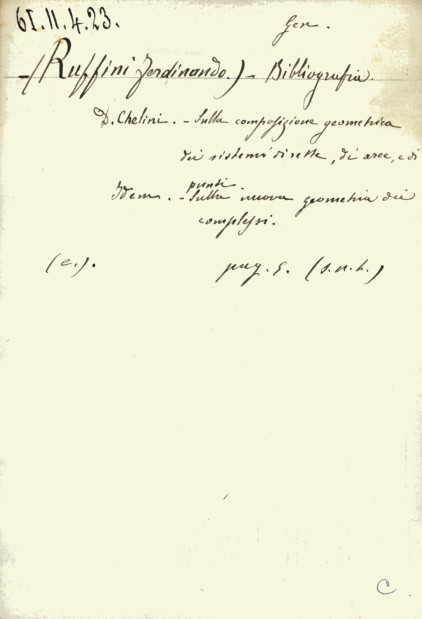 61.II.4.23.
Gen.
-(Ruffini Ferdinando.) - Bibliografia.
D. Chelini. - Sulla composizione geometrica
dei sistemi di rette, di aree, e di
punti.
Idem. - Sulla nuova geometria dei
complessi.
(c.). pag. 5. (s.n.t.)
C